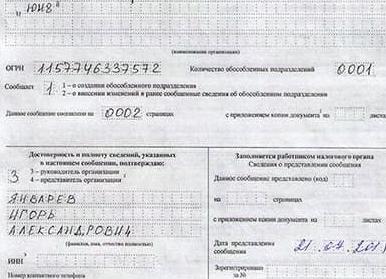 " ЮНЯ "
(наименование организации)
ОГРН 1157746337572 Количество обособленных подразделений 0001
Сообщает 1 1 – о создании обособленного подразделения
2 – о внесении изменений в ранее сообщенные сведения об обособленном подразделении
Данное сообщение составлено на 0002 страницах с приложением копии документа на листах
Достоверность и полноту сведений, указанных
в настоящем сообщении, подтверждаю:
3 3 – руководитель организации
4 – представитель организации
ЯНВАРЕВ
ИГОРЬ
АЛЕКСАНДРОВИЧ
(фамилия, имя, отчество полностью)
ИНН
Номер контактного телефона
Заполняется работником налогового органа
Сведения о представлении сообщения
Данное сообщение представлено (код)
на страницах
с приложением копии документа на листах
Дата представления
сообщения 21.07.201
Зарегистрировано
за №